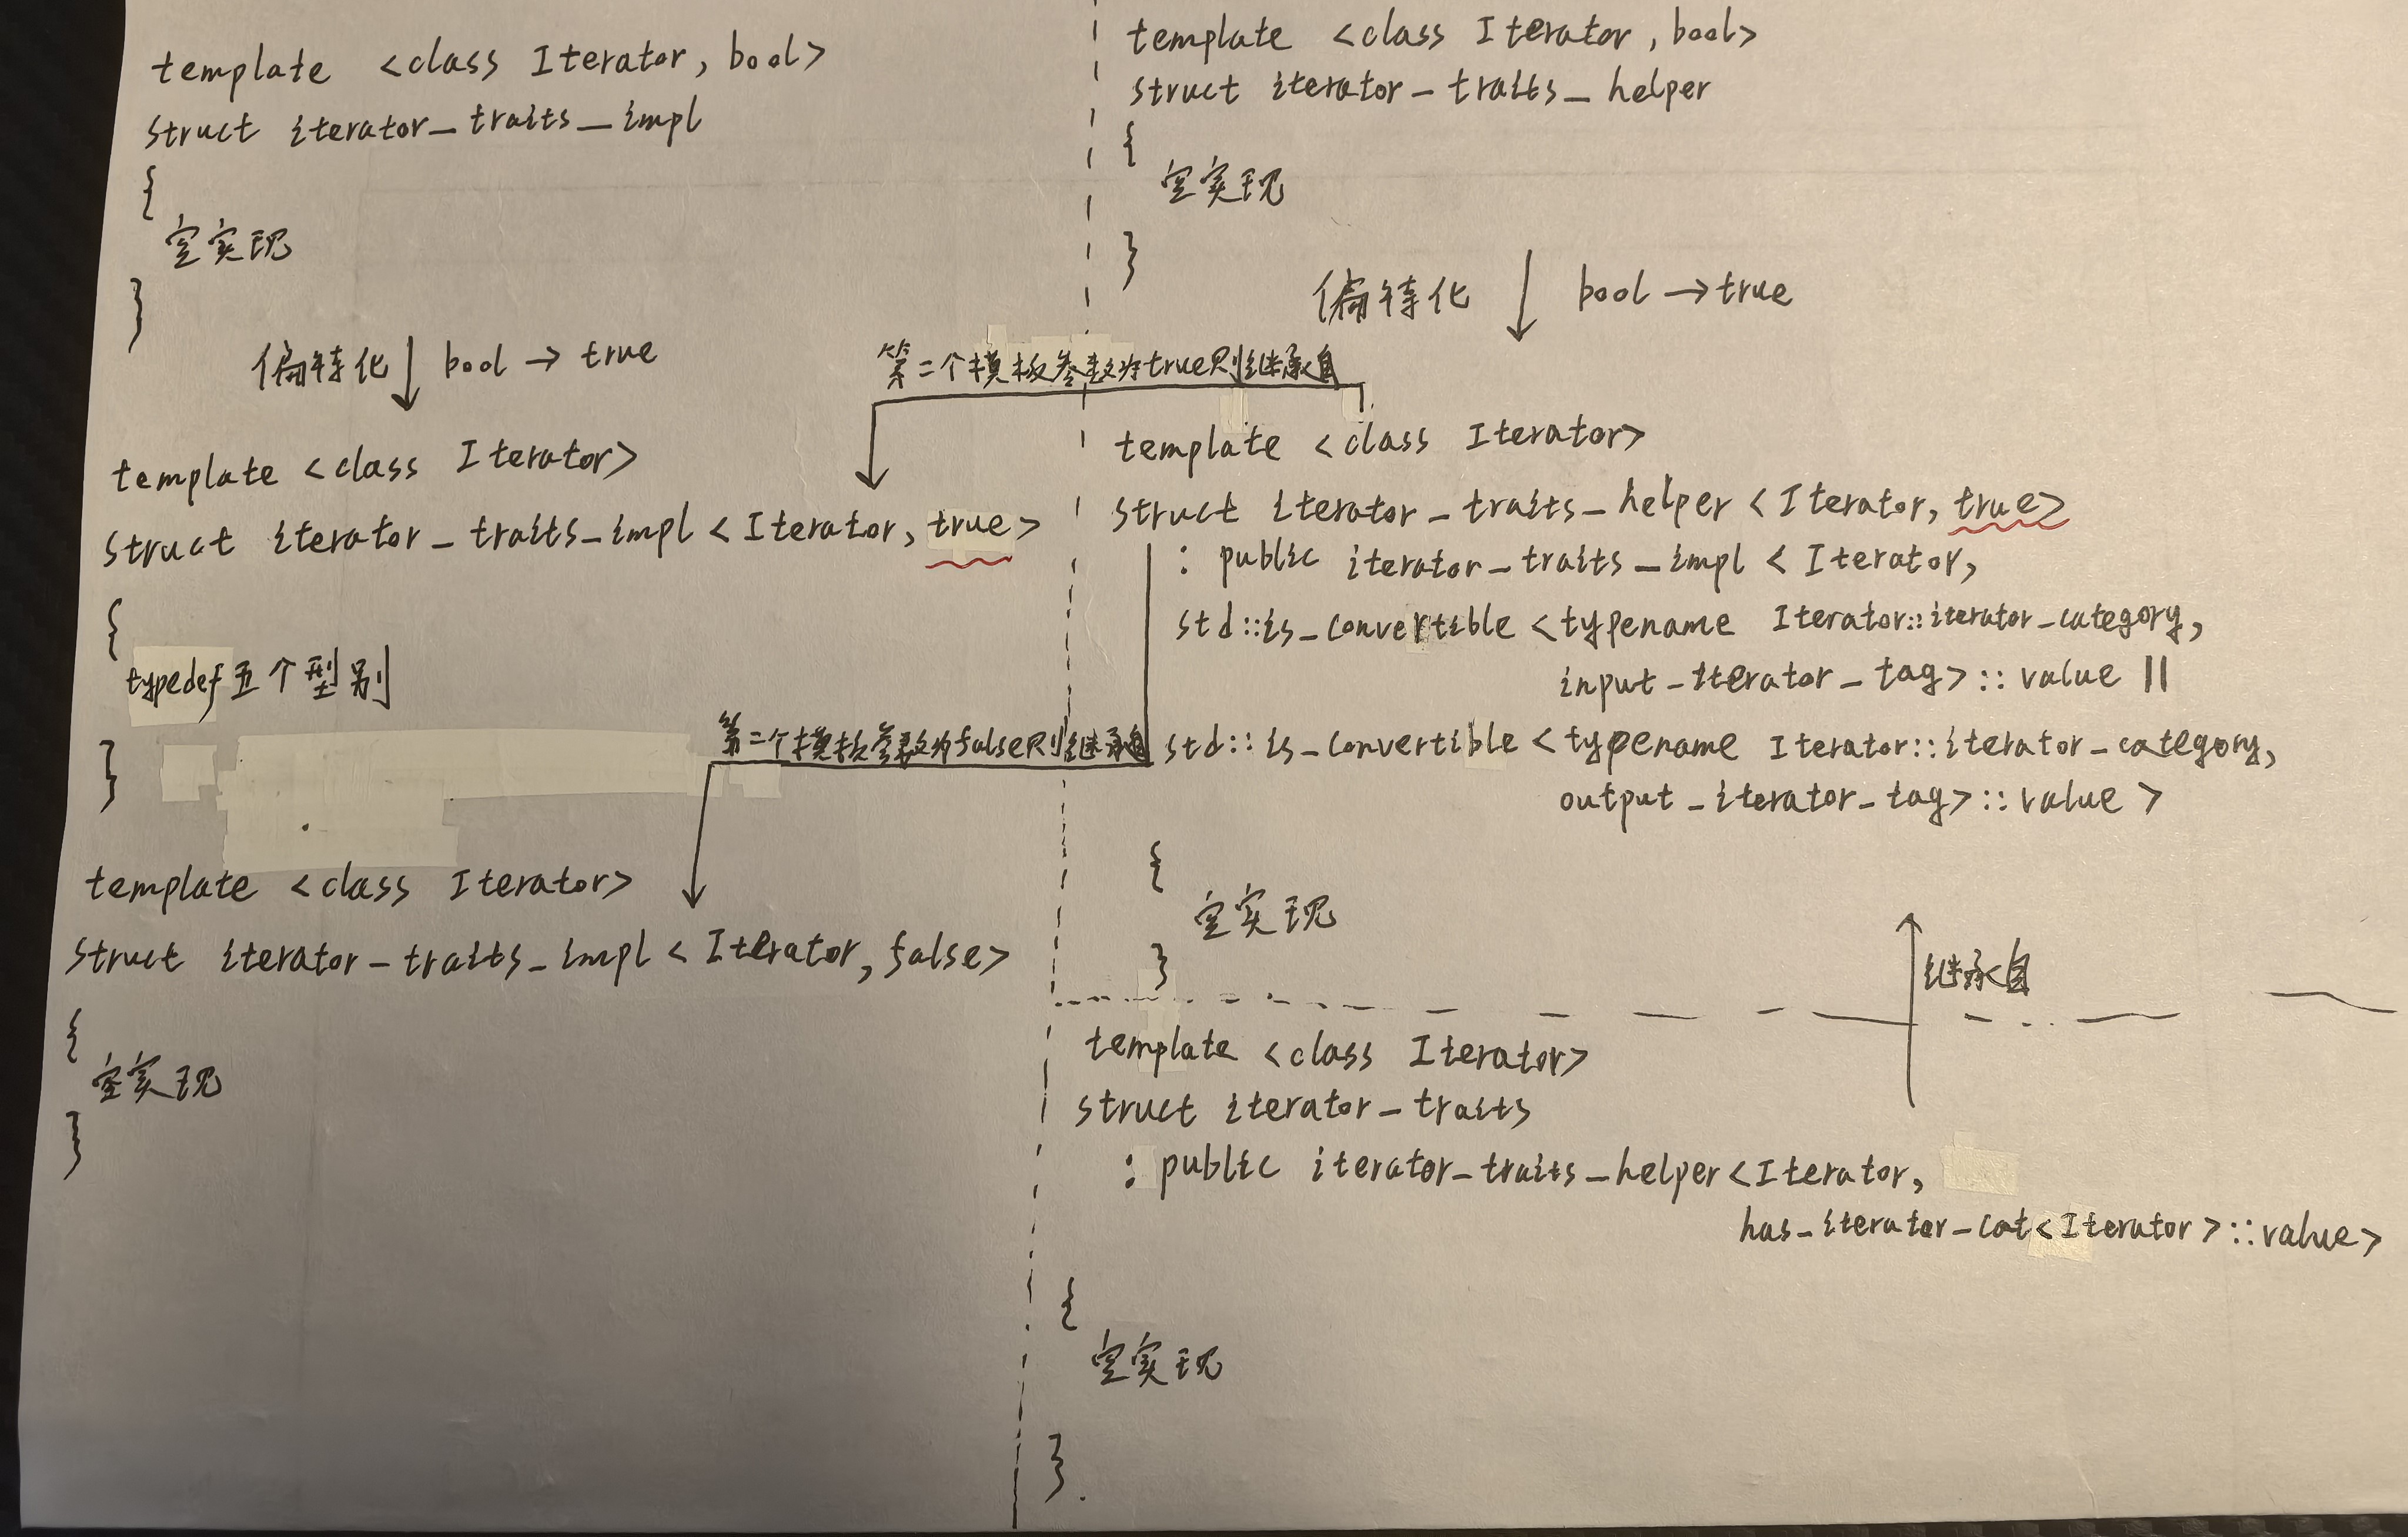 template <class Iterator, bool>
struct iterator_traits_impl
{
空实现
}
偏特化 ↓ bool → true
template <class Iterator>
struct iterator_traits_impl < Iterator, true>
{
typedef五个型别
}
template <class Iterator>
struct iterator_traits_impl < Iterator, false>
{
空实现
}
template <class Iterator, bool>
struct iterator_traits_helper
{
空实现
}
偏特化 ↓ bool → true
第二个模板参数为true则继承自
template <class Iterator>
struct iterator_traits_helper < Iterator, true>
: public iterator_traits_impl < Iterator,
std::is_convertible <typename Iterator::iterator_category,
input_iterator_tag>::value ||
第二个模板参数为false则继承自
std::is_convertible <typename Iterator::iterator_category,
output_iterator_tag>::value >
{
空实现
}
继承自
template <class Iterator>
struct iterator_traits
: public iterator_traits_helper<Iterator,
has_iterator_cat<Iterator>::value>
{
空实现
}.